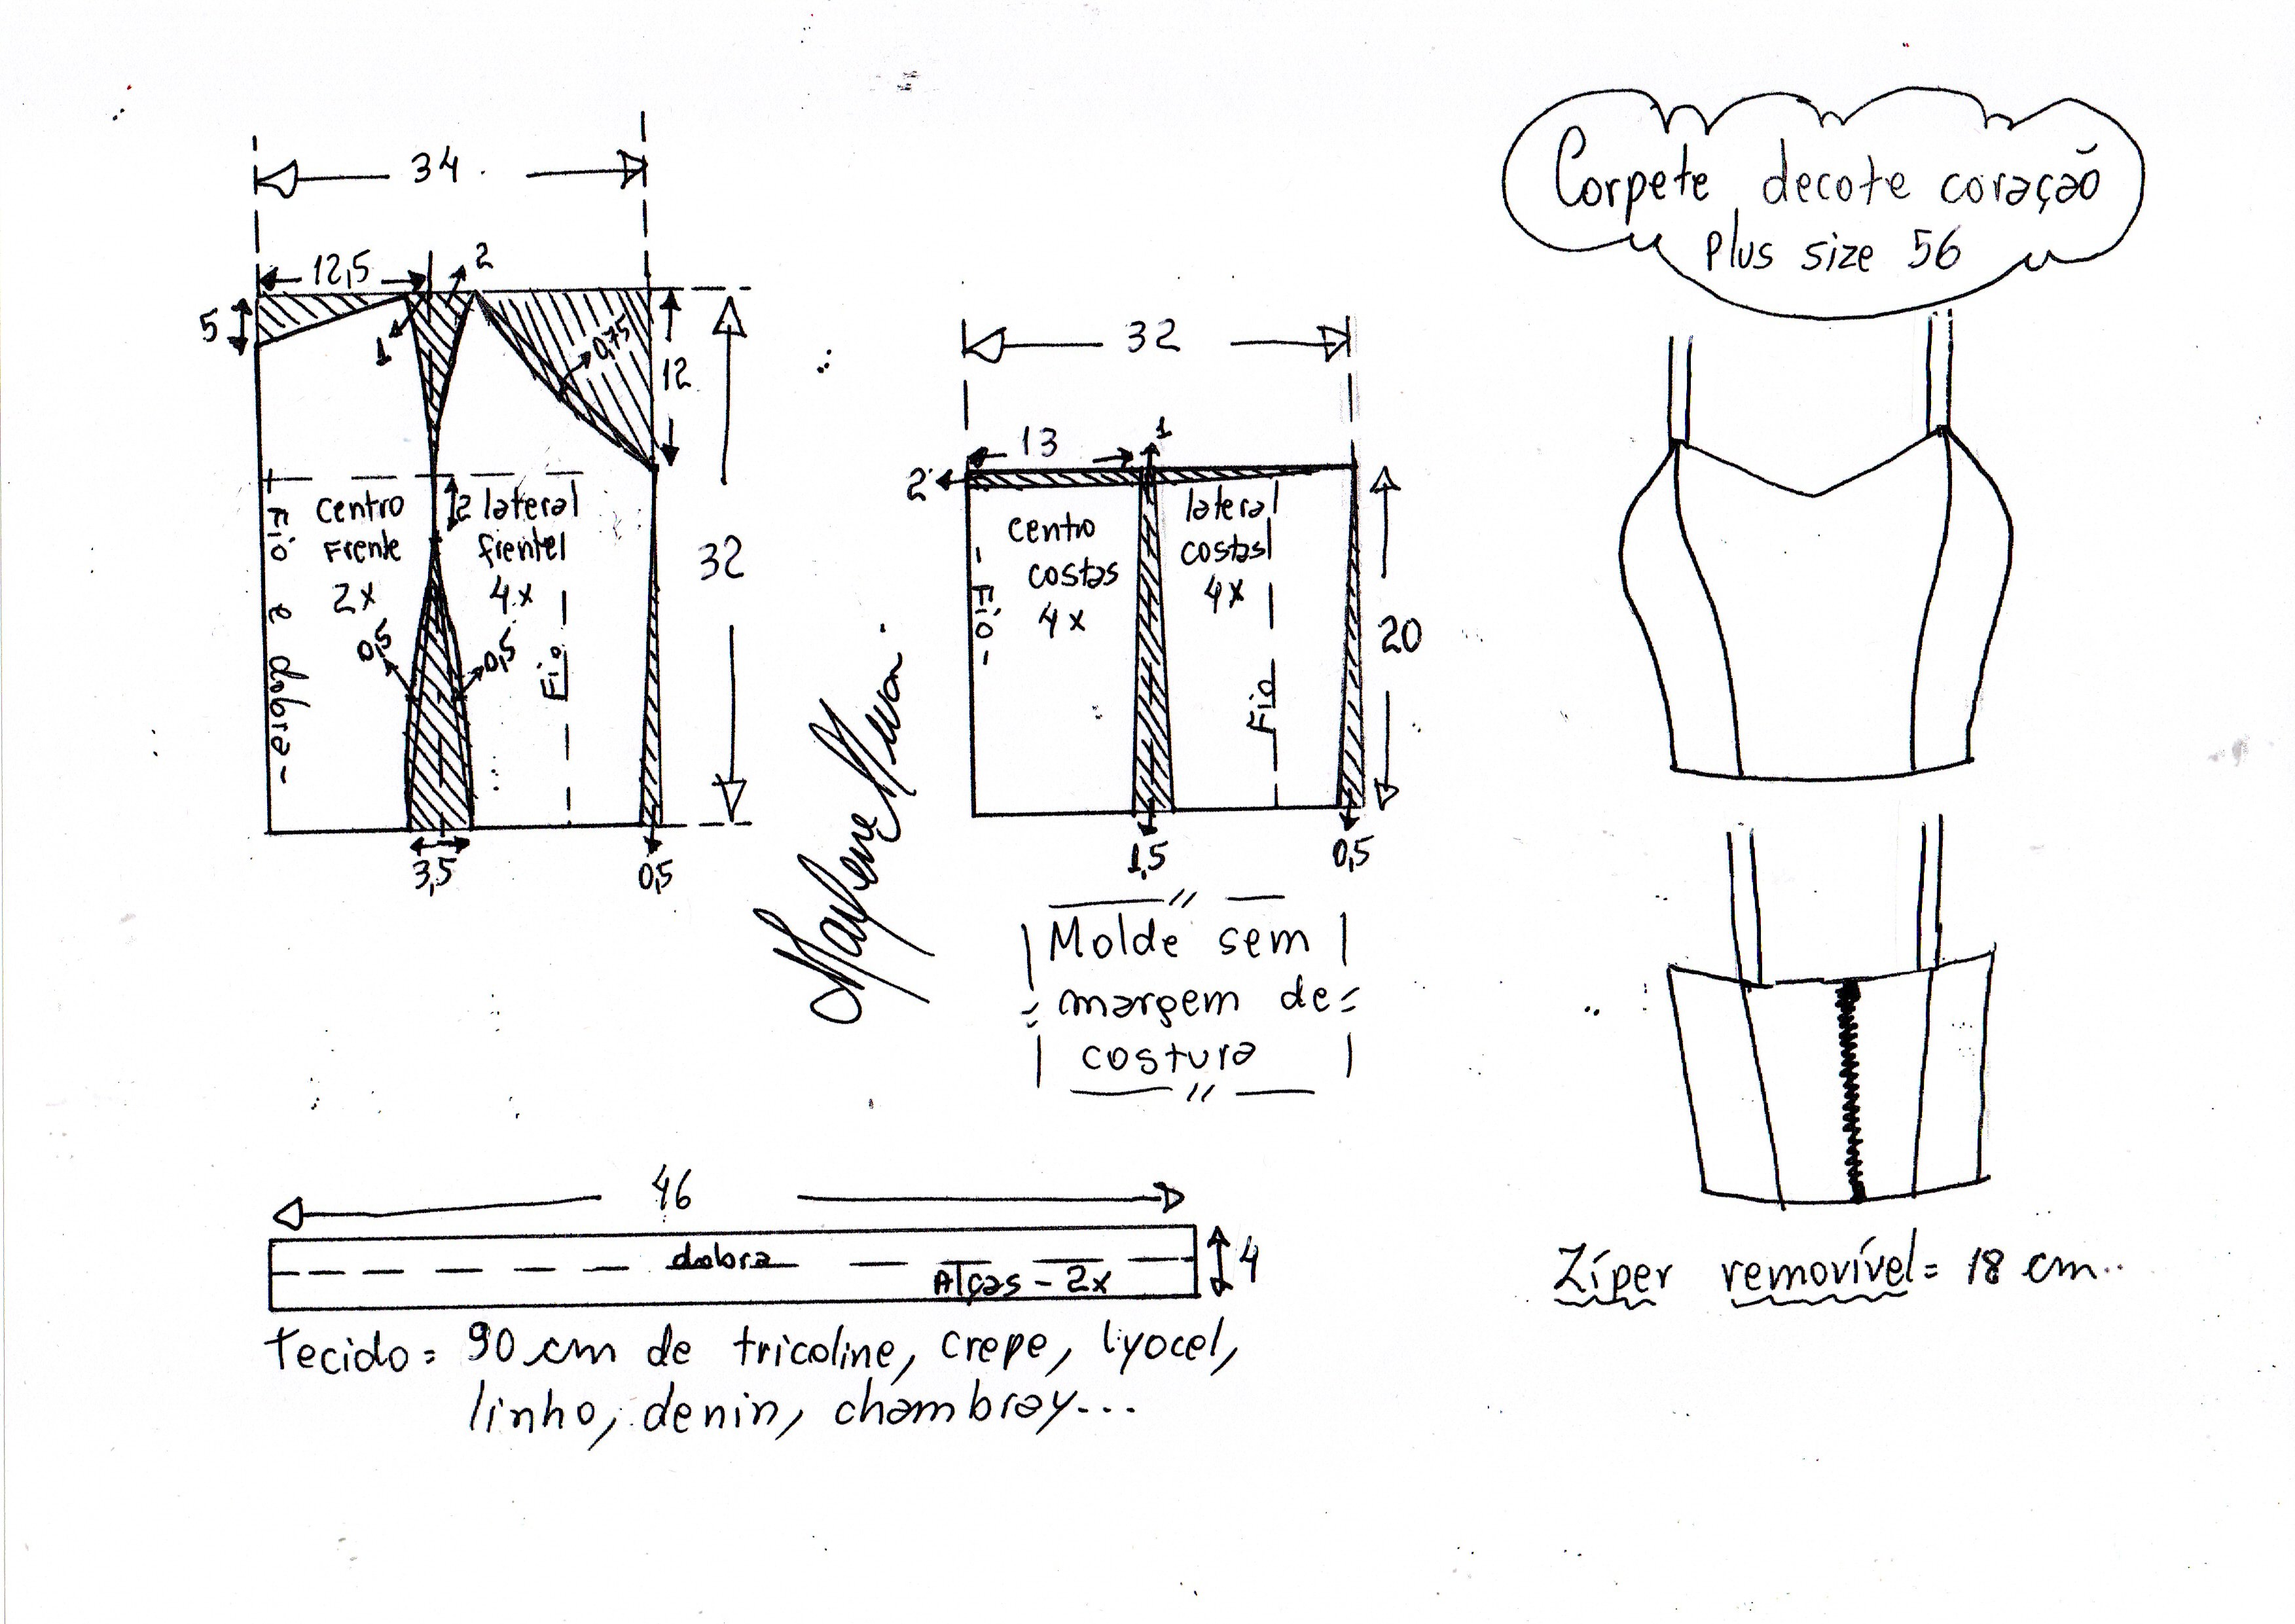 Corpete decote coração
plus size 56
34
12,5
2
5
1
0,75
12
32
Centro
Frente
2x
2
lateral
frente
4x
Fio e dobra
0,5
0,5
Fio
3,5
0,5
32
13
1
2
centro
costas
4x
lateral
costas
4x
Fio
Fio
20
1,5
0,5
Marlene Mukai
Molde sem
margem de
costura
46
dobra
Alças - 2x
4
Tecido = 90 cm de tricoline, crepe, lyocel,
linho, denin, chambray...
Zíper removível = 18 cm..